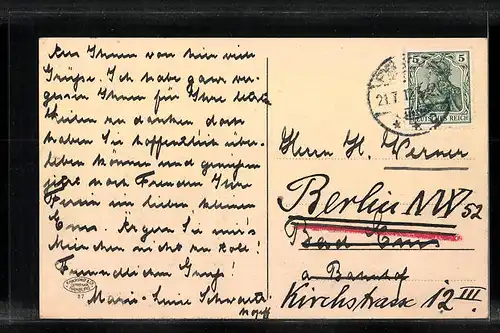 Um Ihnen von hier viele
Grüße. Ich habe ganz ver-
gessen Ihnen für Ihre letzte
Karten zu danken doch
haben Sie hoffentlich über-
leben können und genießen
jetzt noch Freuden Ihre
Ferien im lieben kleinen
Ems. Ärgern Sie mir's
München nicht zu toll!
Freundlichen Gruß!
Marie-Luise Schwartz
kopff
37
21.7.
5 5
DEUTSCHES REICH
Herrn H. Werner
Berlin NW 52
Bad Ems
a Bahnhof
Kirchstrasse 12 III.